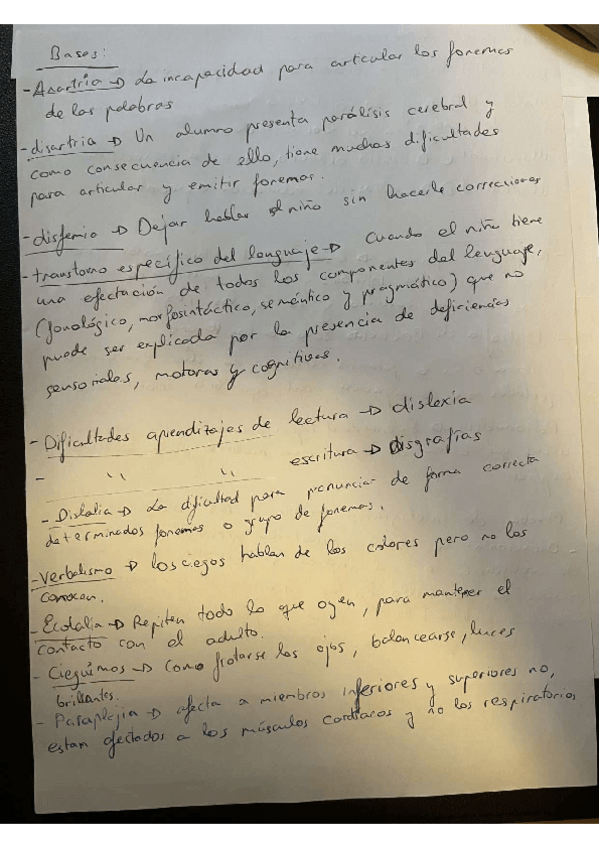 Bases:
- Anartria → La incapacidad para articular los fonemas
de las palabras
- disartria → Un alumno presenta parálisis cerebral y
como consecuencia de ello, tiene muchas dificultades
para articular y emitir fonemas.
- disfemia → Dejar hablar al niño sin hacerle correcciones
- transtorno específico del lenguaje → Cuando el niño tiene
una efectación de todos los componentes del lenguaje,
(fonológico, morfosintáctico, semántico y pragmático) que no
puede ser explicada por la presencia de deficiencias
sensoriales, motoras y cognitivas.
- Dificultades aprendizajes de lectura → dislexia
- " " escritura → Disgrafías
- Dislalia → La dificultad para ponunciar de forma correcta
determinados fonemas o grupo de fonemas.
- Verbalismo → los ciegos hablan de los colores pero no los
conocen.
- Ecolalia → Repiten todo lo que oyen, para mantener el
contacto con el adulto.
- Cieguimos → Como frotarse los ojos, balancearse, luces
brillantes.
- Paraplejia → afecta a miembros inferiores y superiores no,
estan afectados a los músculos cardíacos y no los respiratorios